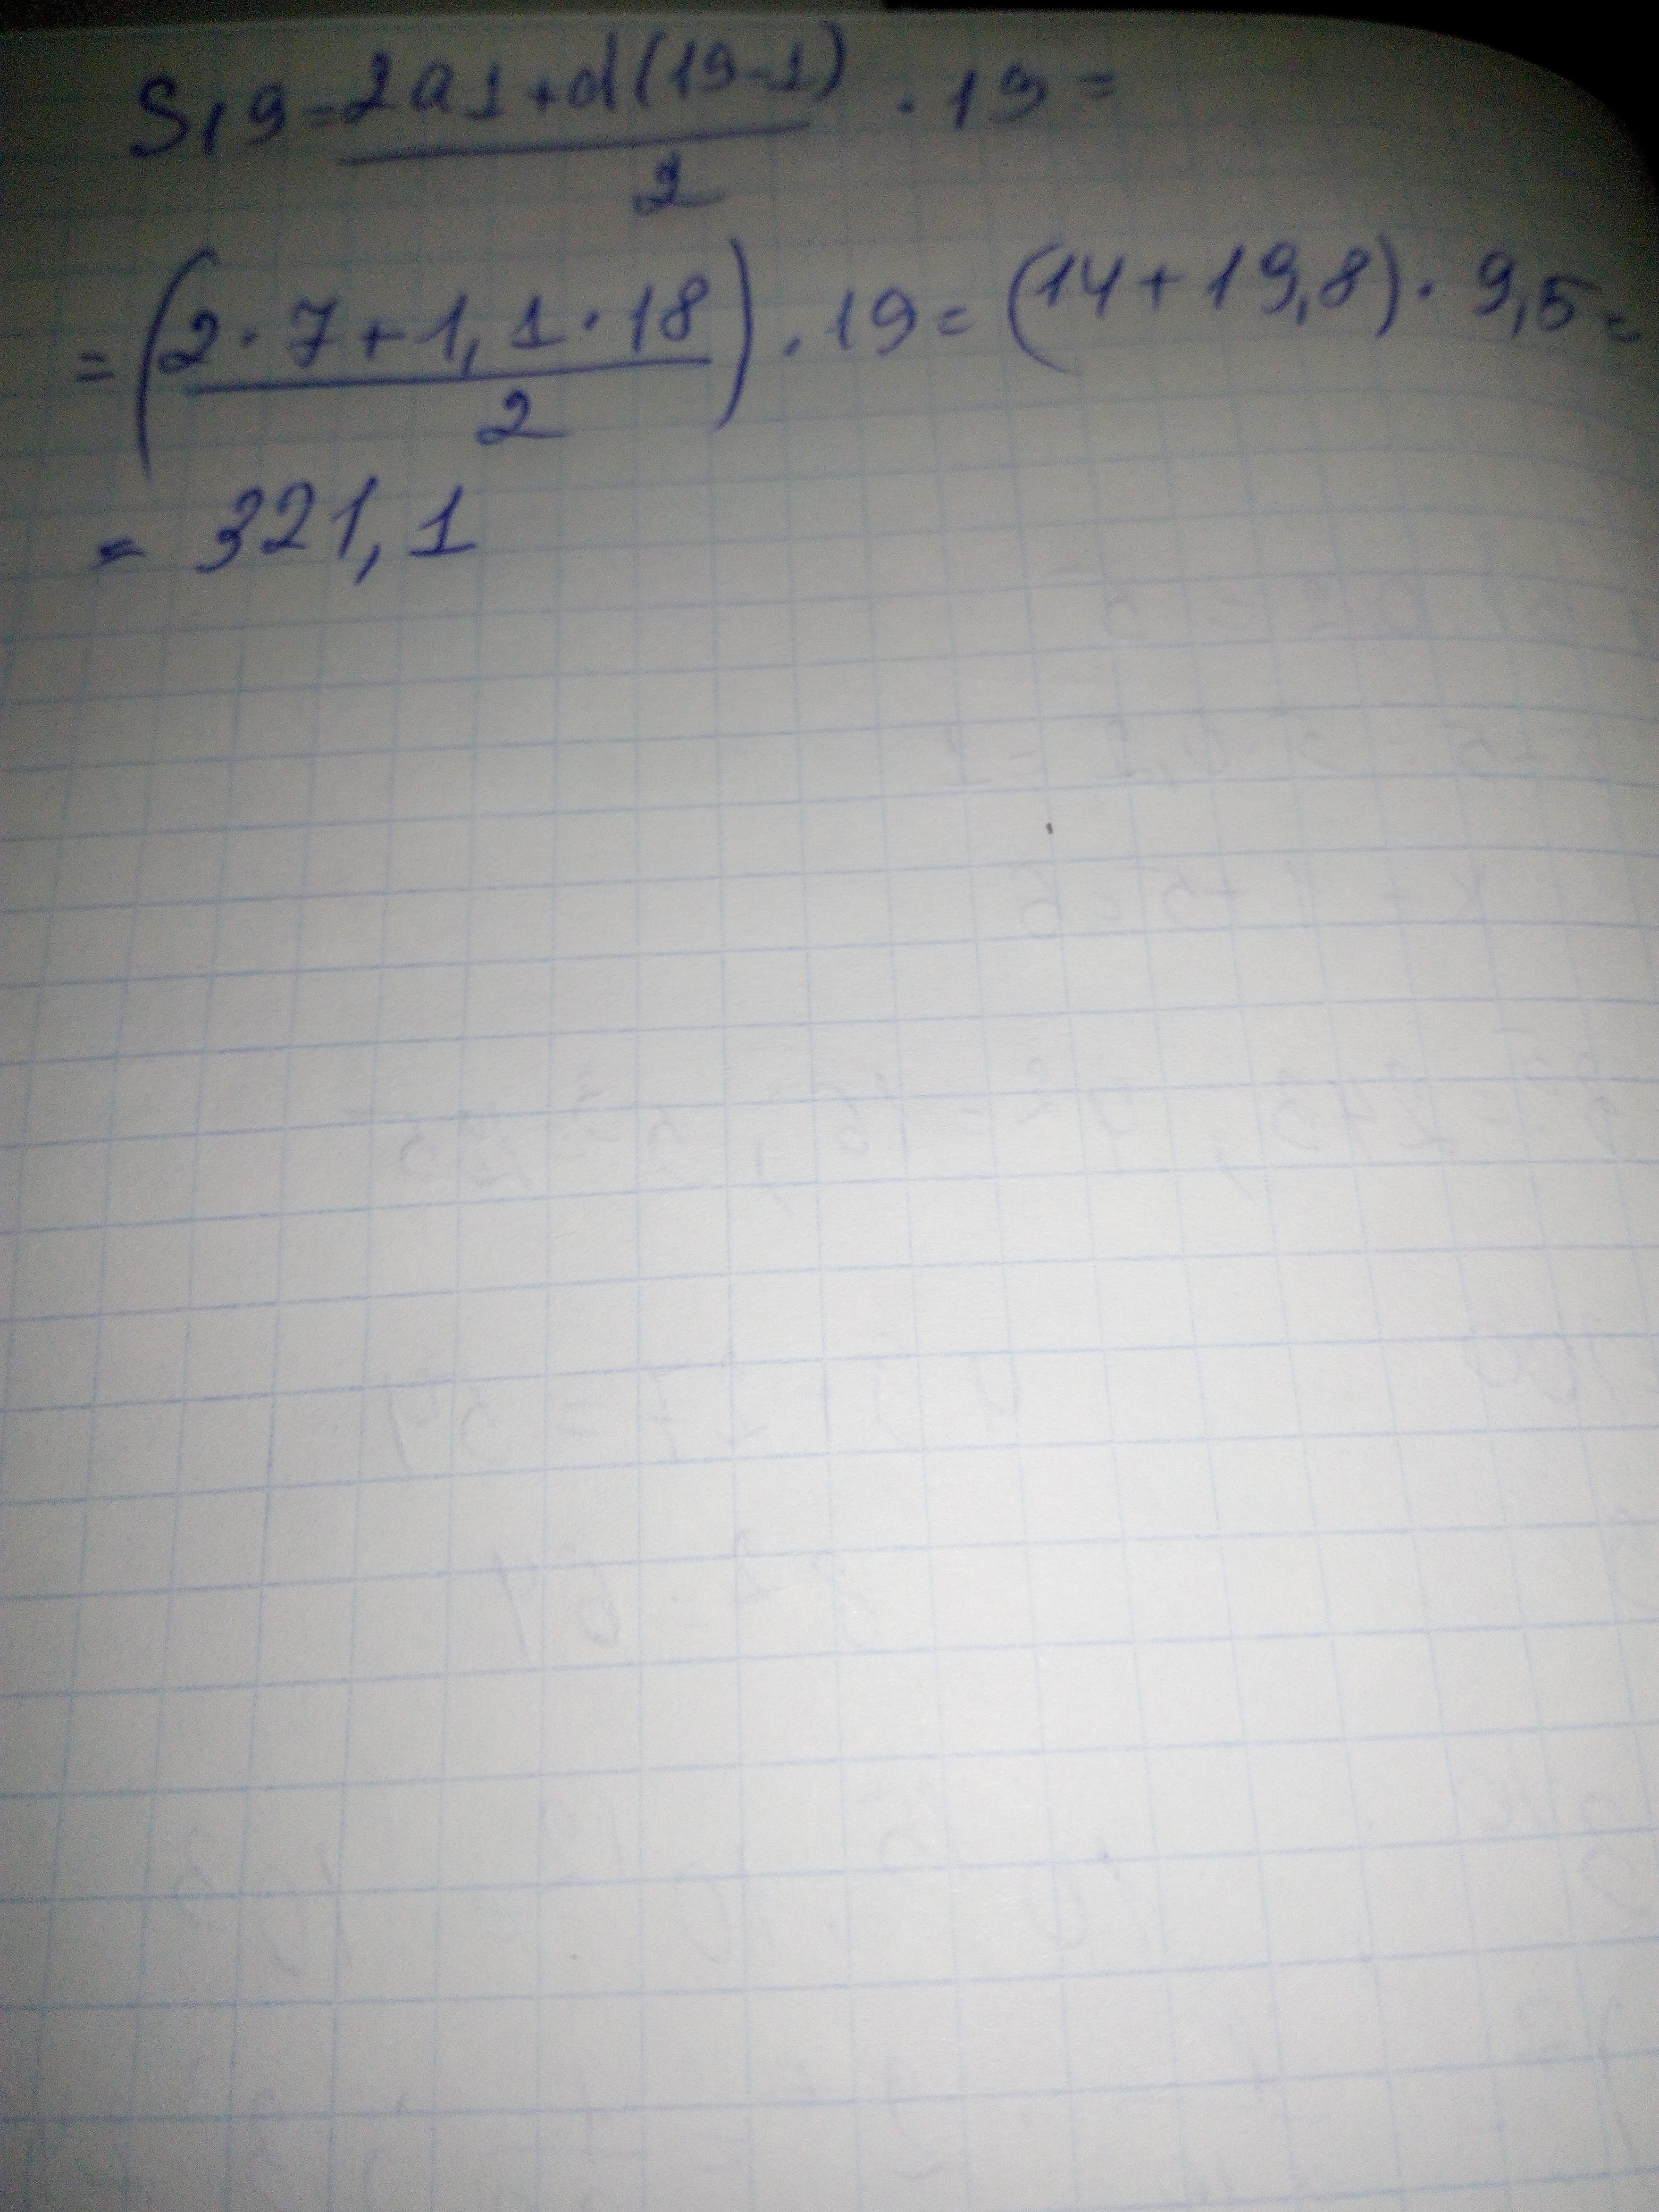 S19=(2a1+d(19-1))/2 · 19=
=((2·7+1,1·18)/2)·19=(14+19,8)·9,5=
= 321,1